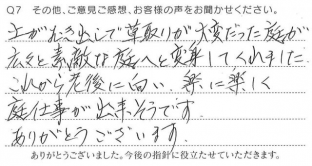 Q7 その他、ご意見ご感想、お客様の声をお聞かせください。
土がむき出しで草取りが大変だった庭が
広々と素敵な庭へと変身してくれました
これから老後に向い、楽に楽しく
庭仕事が出来そうです
ありがとうございます
ありがとうございました。今後の指針に役立たせていただきます。